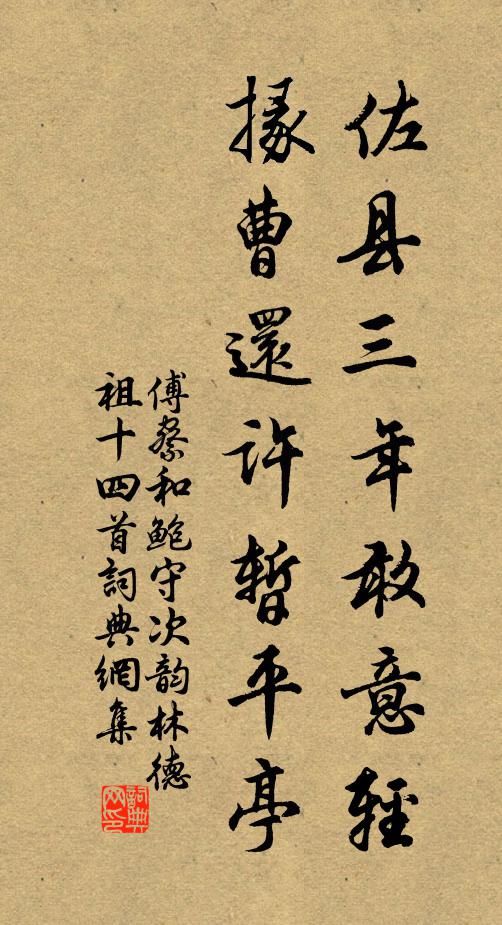 佐县三年敢意輕
掾曹還許暫平亭
傅察和鮑守次韵林德
祖十四首詞典網集
詞典網印